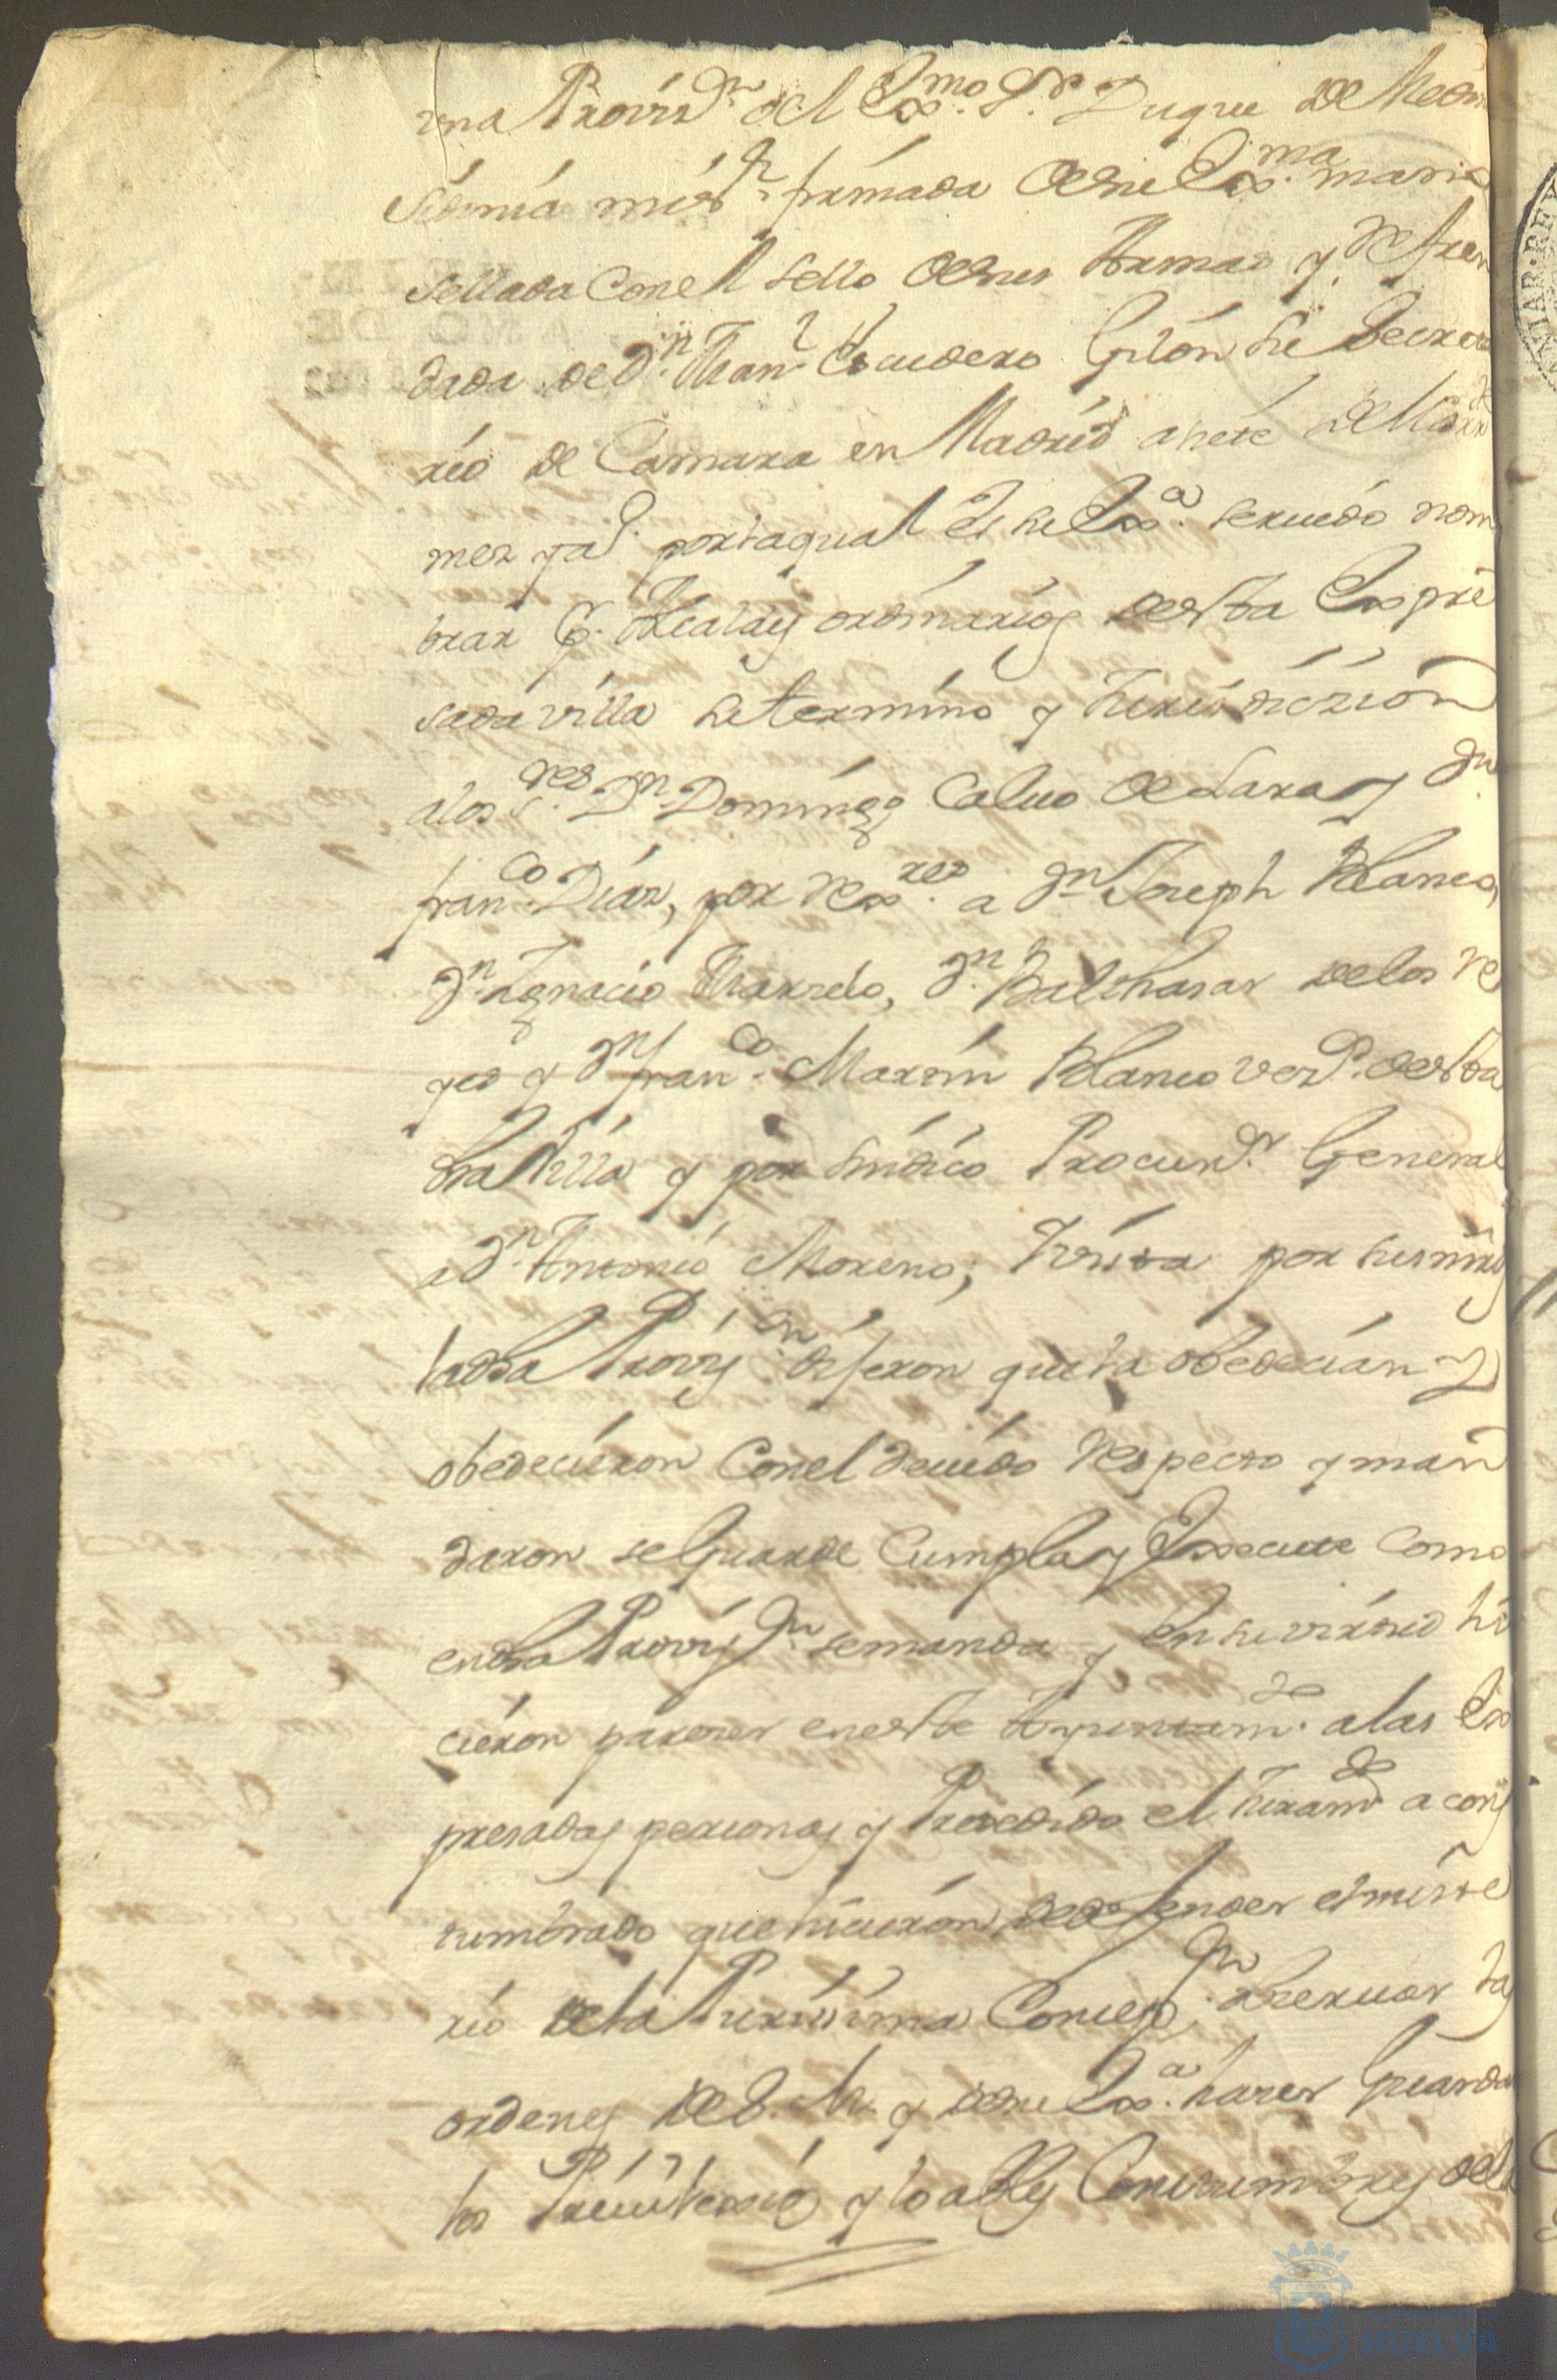 una Provis.on del Ex.mo S.r Duque de Medin
Sidonia mi s.r firmada de su Ex.ma mano
sellada con el sello de sus Armas y Refren
dada de D.n Man.l Escudero Gilón su Secreta
rio de Camara en Madrid a siete de Mes
mes y a.o por la qual di su Ex.a se ruedo nom
brar p.r Alcaldes ordinarios desta Expre
sada villa su termino y Jurisdiczion
a los S.res D.n Domingo Calvo de Lara y D.n
fran.co Diaz, por Rex.res a D.n Joseph Blanco,
D.n Ygnacio Garrido, D.n Balthasar de los Re
yes y D.n fran.co Martin Blanco vez.s desta
dha Villa y por Sindico Procur.or General
a D.n Antonio Moreno; Y vista por sus mrds
la dha Provis.on dijeron que la obedecian y
obedecieron con el devido Respecto y man
daron se Guarde Cumpla y Execute como
en dha Provis.on se manda y en su virtud hi
cieron parecer en este Ayuntam.to a las Ex
presadas personas y Precedido el Juram.to a cos
tumbrado que hicieron de defender el miste
rio de la Purissima Concep.on obseruar las
ordenes de S. M. y de su Ex.a hacer Guardar
los Privilexios y loables Constumbres de la
HUELVA